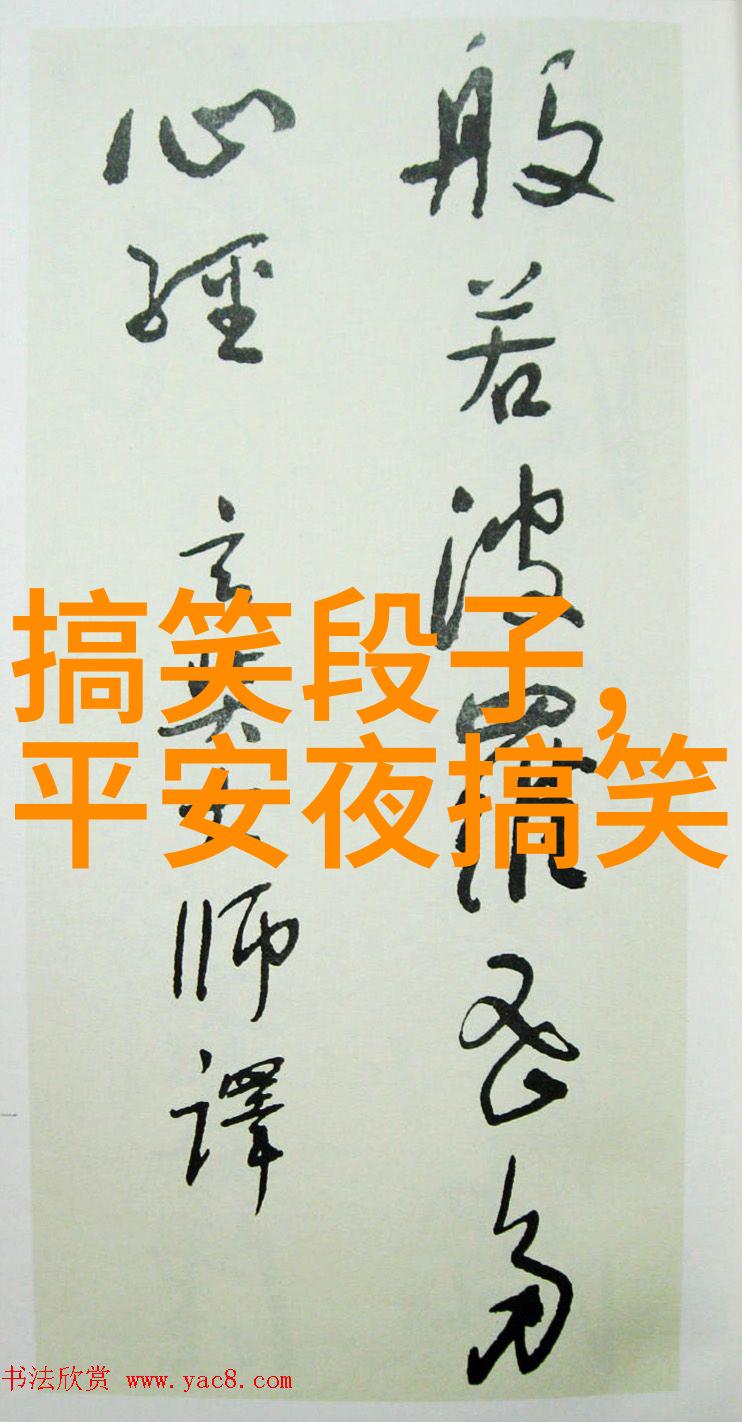 般若波羅密多
心經 玄奘大師譯
搞笑段子,
平安夜搞笑
书法欣赏 www.yac8.com